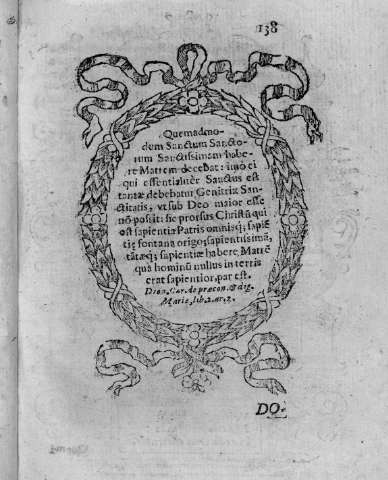 138
Quemadmo-
dem Sanctum Sancto-
rum Sanctissimam habe-
re Matrem decebat: imò ei
qui essentialitèr Sanctus est
tantæ debebatur Genitrix San-
ctitatis, vt sub Deo maior esse
nō possit: sic prorsus Christū qui
est sapientia Patris omnisq; sapiē
tię fontana origo; sapientissimā,
tātæq; sapientiæ habere Matrē
qua hominū nullus in terris
erat sapientior, par est.
Dion. Car. de præcon. & dig.
Mariæ, lib. 2. ar. 2.
DO-